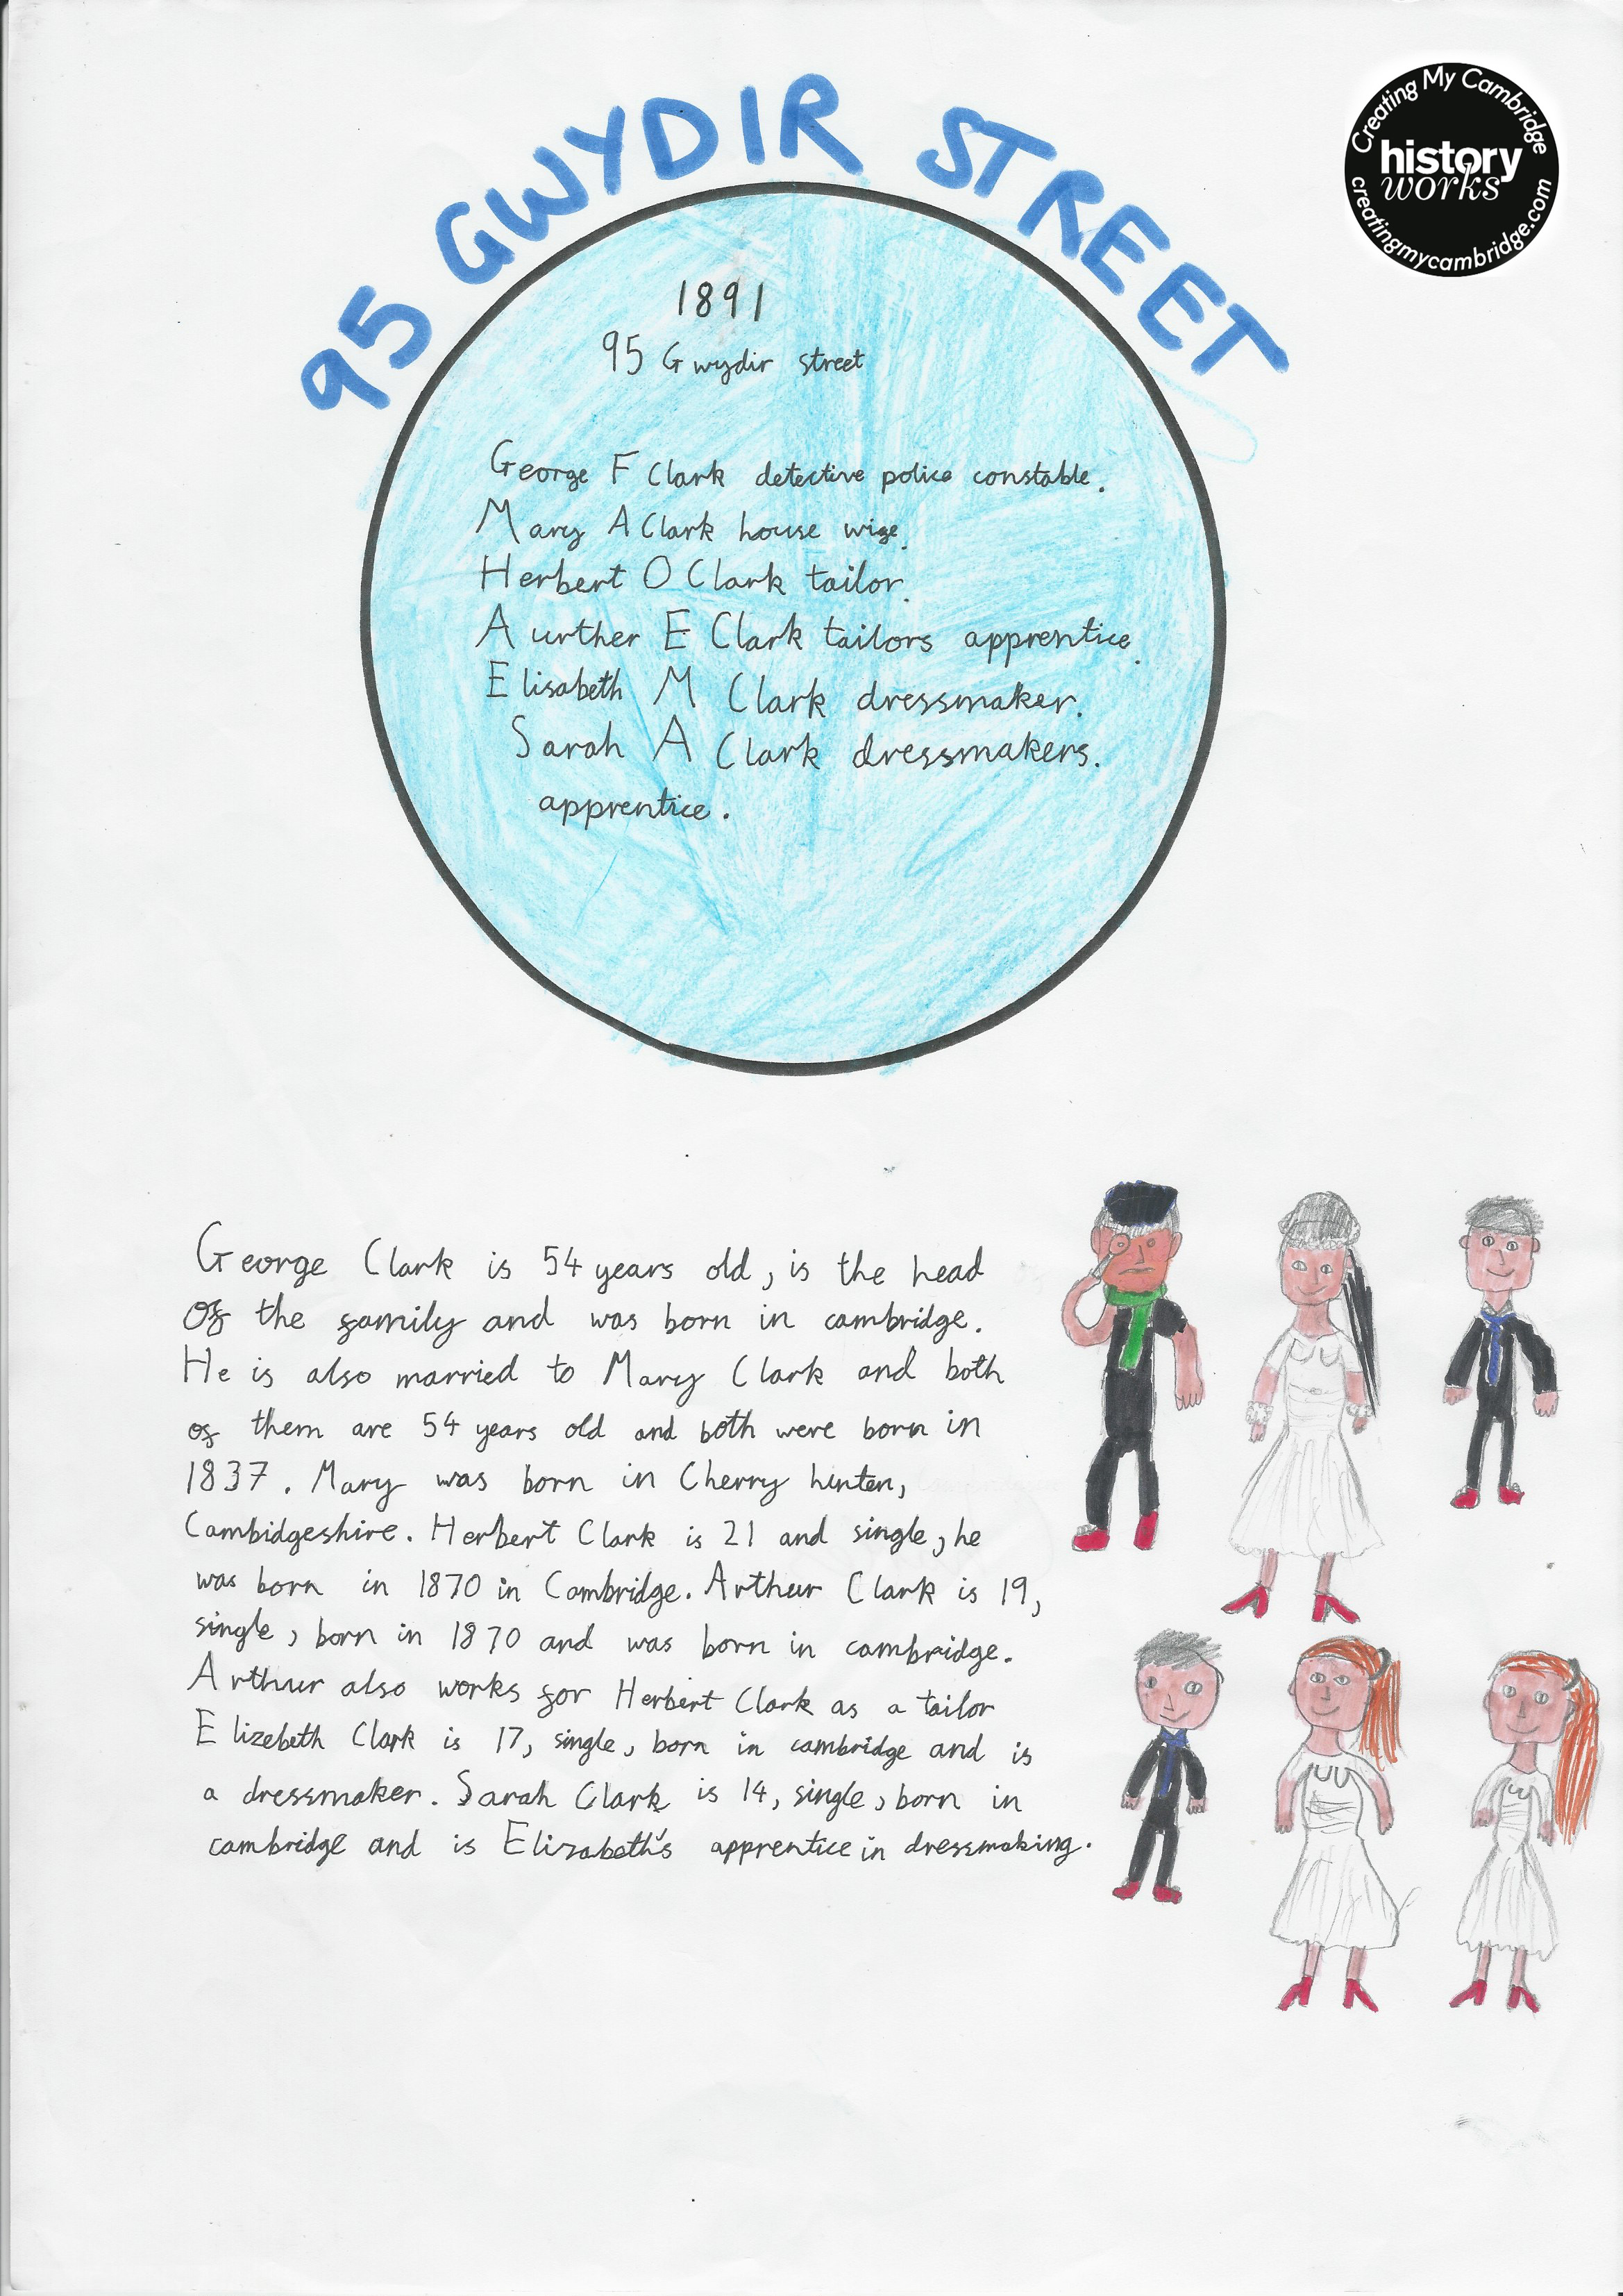 95 GWYDIR STREET
Creating My Cambridge
history
works
creatingmycambridge.com
1891
95 Gwydir street
George F Clark detective police constable.
Mary A Clark house wife.
Herbert O Clark tailor.
Aurther E Clark tailors apprentice.
Elisabeth M Clark dressmaker.
Sarah A Clark dressmakers.
apprentice.
George Clark is 54 years old, is the head
of the family and was born in cambridge.
He is also married to Mary Clark and both
of them are 54 years old and both were born in
1837. Mary was born in Cherry hinten,
Cambidgeshire. Herbert Clark is 21 and single, he
was born in 1870 in Cambridge. Arthur Clark is 19,
single, born in 1870 and was born in cambridge.
Arthur also works for Herbert Clark as a tailor
Elizebeth Clark is 17, single, born in cambridge and is
a dressmaker. Sarah Clark is 14, single, born in
cambridge and is Elizabeth's apprentice in dressmaking.